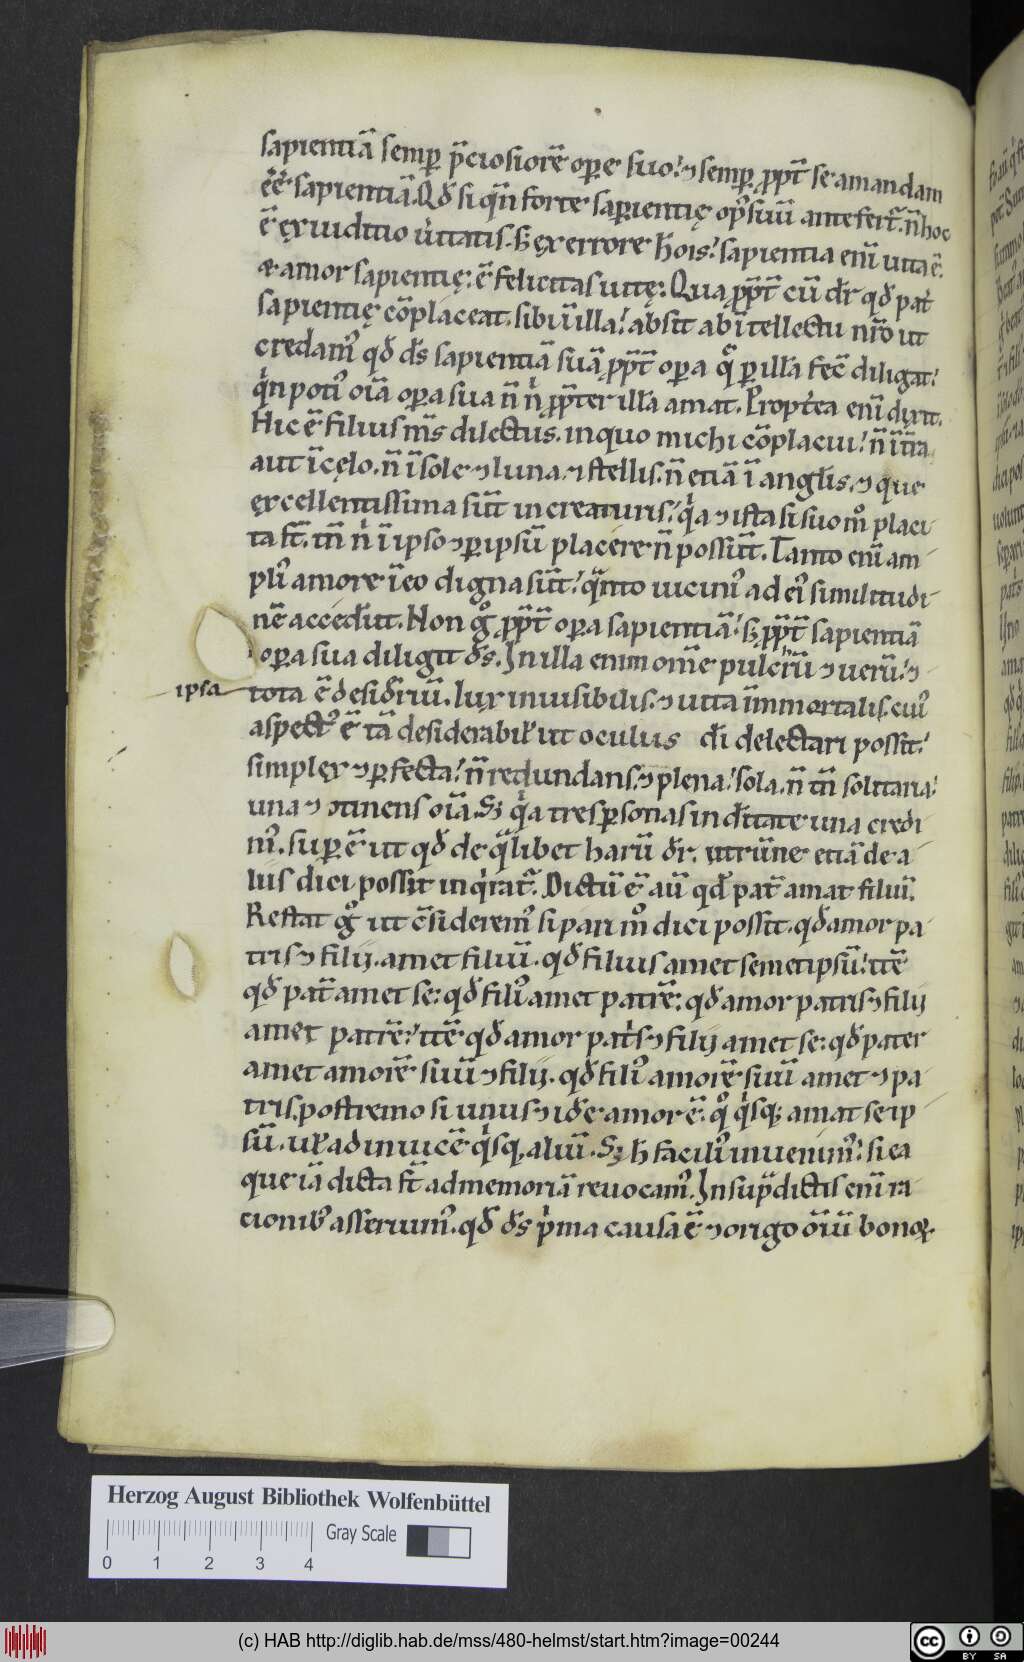 sapientiā semꝑ p̄ciosiorē oꝑe suo. ⁊ semꝑ ꝓp̄t̄ se amandam
ēē sapientiā. Qđ si q̄n forte saꝑientię op̾ suū antefert̾. n̄ hoc
ē ex iuditio u̾itatis. sꝫ ex errore ħois. sapientia eni̅ uita ē.
& amor sapientię; ē felicitas uitę. Quaꝓp̄t̄ cū dr̄ qđ pat̾
sapientię cōplaceat. sibi ī illa. absit ab ītellectu nr̄o ut
credam᷒ qđ ds̄ sapientiā suā ꝓp̄t̄ oꝑa q̄ ꝑ illā fec̄ diligat.
q̇n poti᷒ oīa oꝑa sua n̄ n̊ ꝓp̄ter illā amat. Propt̾ea eni̅ dixit.
Hic ē filius m̄s dilectus. in quo michi cōplacui. n̄ ī t̄ra
aut ī cęlo. n̄ ī sole ⁊ luna. ⁊ stellis. n̄ etiā ī angl̄is. ⁊ que
excellentissima sūt in creaturis. q̇a ⁊ ista si suo m̊ placi-
ta sī̄t. tn̄ n̊ ī ipso ⁊ ꝑ ipsū placere n̄ possūt. Tanto eni̅ am-
pli᷒ amore ī eo digna sūt. q̄nto uicini᷒ ad ei᷒ similitudi-
nē accedūt. Non g̊ ꝓp̄t̄ oꝑa sapientiā. sꝫ ꝓp̄t̄ sapientiā
oꝑa sua diligit ds̄. In illa enim om̄e pulcrū ⁊ uerū. ⁊
ipsa tota ē desiđiū. lux inuisibilis. ⁊ uita īmmortalis. cui᷒
aspect᷒ ē tā desiderabil̾ ut oculus di̅ delectari possit.
simplex ⁊ ꝑfecta. n̄ redundans. ⁊ plena. sola. n̄ tn̄ solitaria.
una ⁊ ꝯtinens oīa. Sꝫ q̇a tres ꝑsonas in ditate una credi-
m᷒. suꝑ ē ut qđ de q̄libet harū dr̄. utrūne etiā de a-
liis dici possit inq̇rat̾. Dictū ē aū qđ pat̾ amat filiū.
Restat g̊ ut c̄siderem᷒ si pari m̊ dici possit. qđ amor pa-
tris ⁊ filij. amet filiū. qđ filius amet semetipsū. ite̅
qđ pat̾ amet se. qđ fili᷒ amet patrē. qđ amor patris ⁊ filij
amet patrē. ite̅ qđ amor pat̾s ⁊ filij amet se. qđ pater
amet amorē suū ⁊ filij. qđ fili᷒ amorē suū amet ⁊ pa-
tris. postremo si unus ⁊ idē amor ē. q̊ q̇sqꝫ amat se ip-
sū. ul̾ ad inuicē q̇sqꝫ aliū. Sꝫ h̄ facili᷒ inuenim᷒. si ea
que iā dicta sī̄t ad memoriā reuocam᷒. In sup̄dictis eni̅ ra-
cionib᷒ asseruim᷒. qđ ds̄ p̊ma causa ē ⁊ origo oīū bonoꝝ
Herzog August Bibliothek Wolfenbüttel
Gray Scale
0 1 2 3 4
(c) HAB http://diglib.hab.de/mss/480-helmst/start.htm?image=00244
cc BY SA